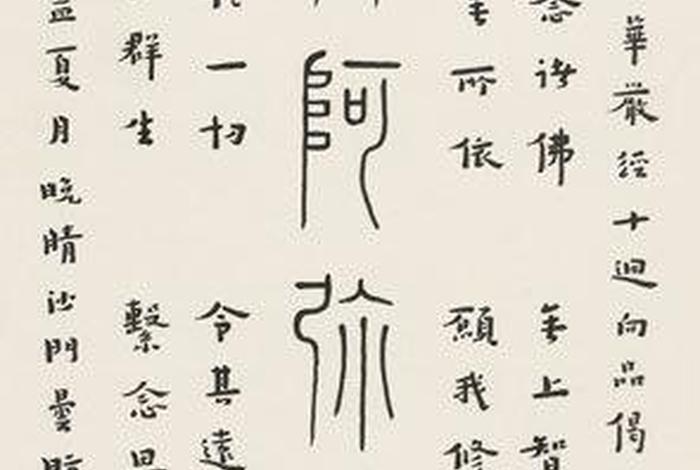 華嚴經十迴向品偈
念諸佛 無上智
所依 願我修
阿弥
一切 令其遠
群生 繫念思
孟夏月晚晴沙門曇昉